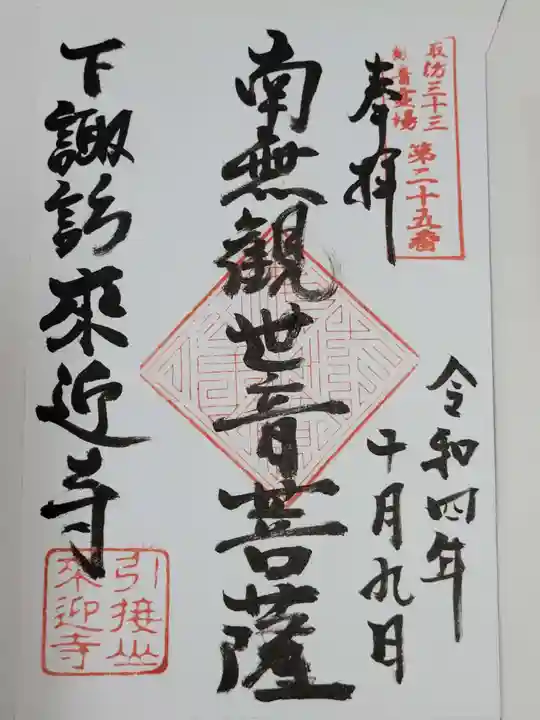 諏訪三十三
観音霊場
第二十五番
奉拝
令和四年
十月九日
南無観世音菩薩
下諏訪來迎寺
引接山
来迎寺